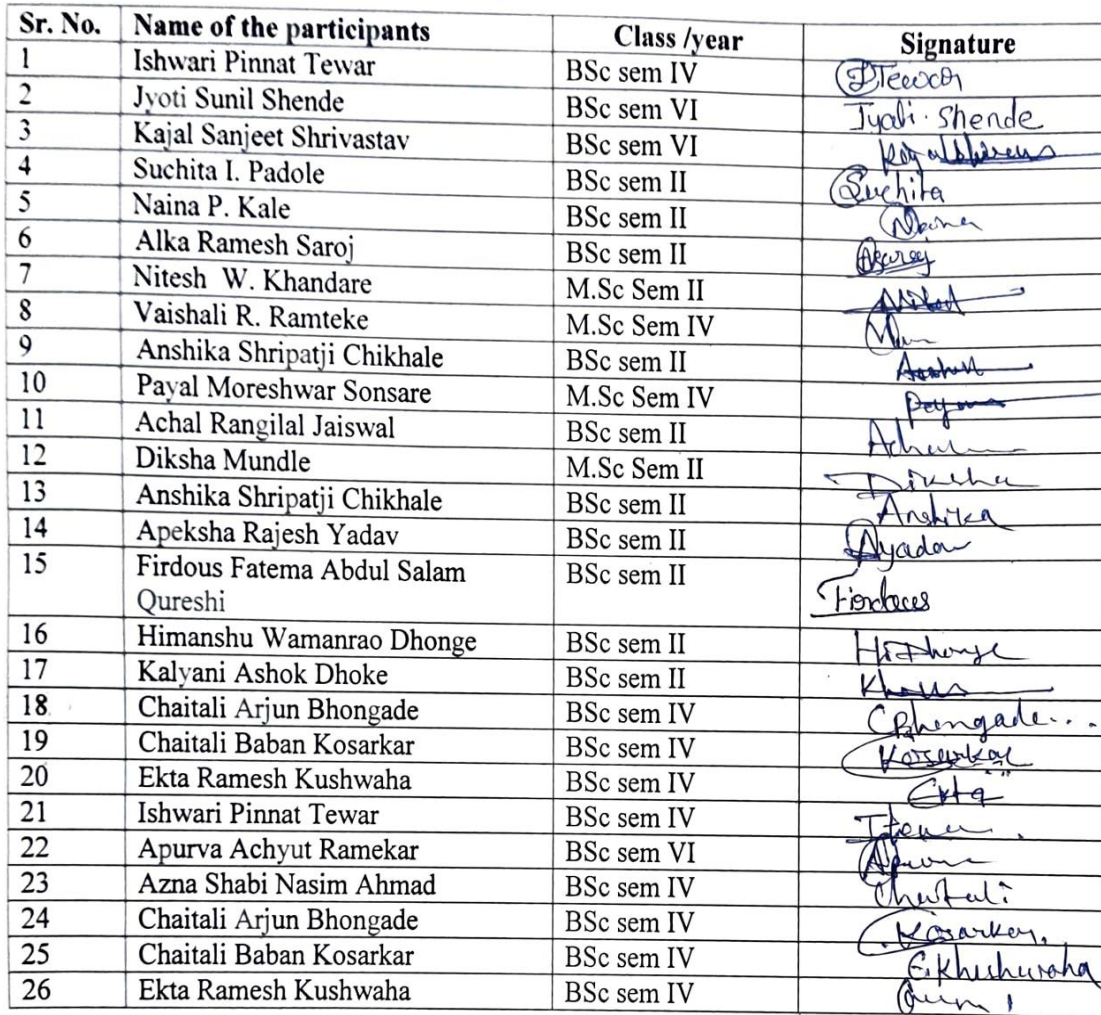 Sr. No. Name of the participants Class /year Signature
1 Ishwari Pinnat Tewar BSc sem IV PTewar
2 Jyoti Sunil Shende BSc sem VI Jyoti. Shende
3 Kajal Sanjeet Shrivastav BSc sem VI
4 Suchita I. Padole BSc sem II Suchita
5 Naina P. Kale BSc sem II Naina
6 Alka Ramesh Saroj BSc sem II
7 Nitesh W. Khandare M.Sc Sem II
8 Vaishali R. Ramteke M.Sc Sem IV
9 Anshika Shripatji Chikhale BSc sem II
10 Payal Moreshwar Sonsare M.Sc Sem IV
11 Achal Rangilal Jaiswal BSc sem II Achal
12 Diksha Mundle M.Sc Sem II Diksha
13 Anshika Shripatji Chikhale BSc sem II Anshika
14 Apeksha Rajesh Yadav BSc sem II Ayadav
15 Firdous Fatema Abdul Salam BSc sem II
Qureshi
16 Himanshu Wamanrao Dhonge BSc sem II HiDhonge
17 Kalyani Ashok Dhoke BSc sem II
18. Chaitali Arjun Bhongade BSc sem IV CBhongade...
19 Chaitali Baban Kosarkar BSc sem IV Kosarkar
20 Ekta Ramesh Kushwaha BSc sem IV Ekta
21 Ishwari Pinnat Tewar BSc sem IV
22 Apurva Achyut Ramekar BSc sem VI
23 Azna Shabi Nasim Ahmad BSc sem IV Chaitali
24 Chaitali Arjun Bhongade BSc sem IV Kosarkar
25 Chaitali Baban Kosarkar BSc sem IV E.Khushwaha
26 Ekta Ramesh Kushwaha BSc sem IV